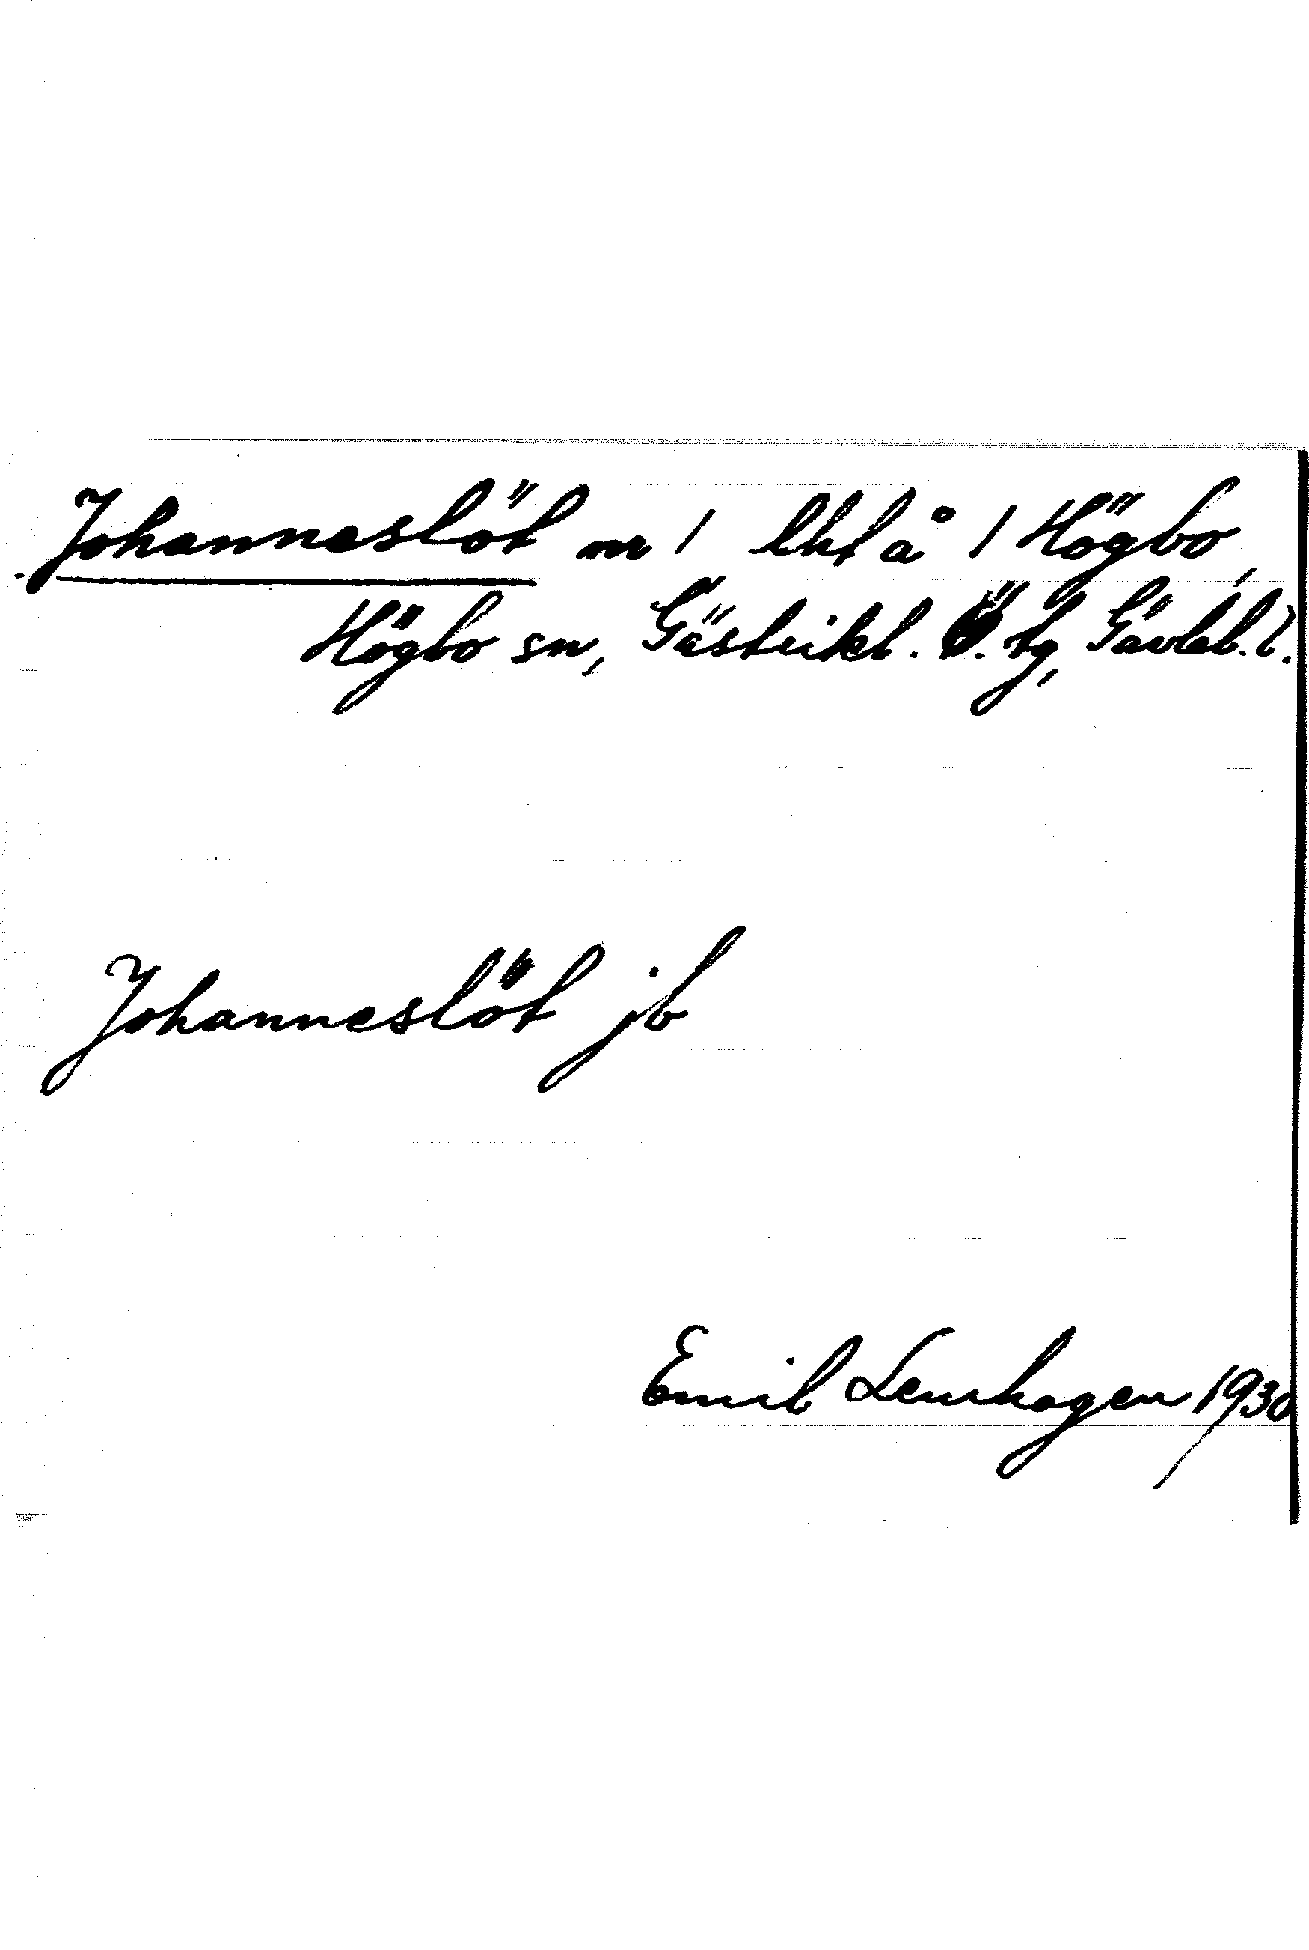 Johanneslöt nr 1 lht å 1 Högbo,
Högbo sn, Gästrikl. Ö. tg, Gävleb. l.
Johanneslöt jb
Emil Lenhagen 1930